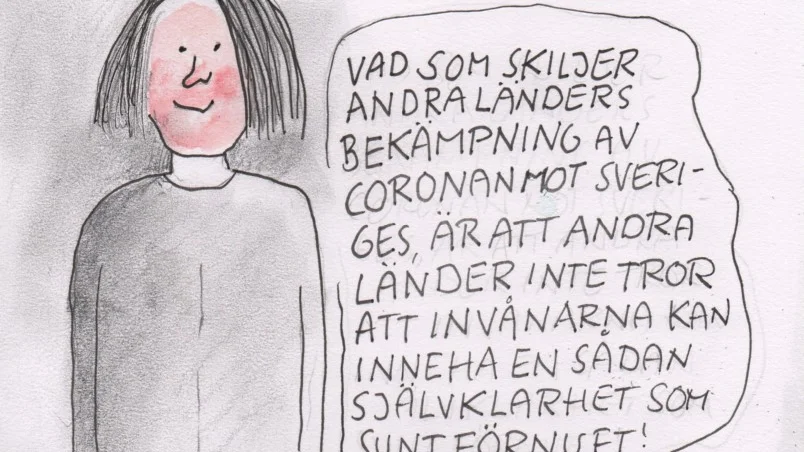 VAD SOM SKILJER
ANDRA LÄNDERS
BEKÄMPNING AV
CORONAN MOT SVERI-
GES, ÄR ATT ANDRA
LÄNDER INTE TROR
ATT INVÅNARNA KAN
INNEHA EN SÅDAN
SJÄLVKLARHET SOM
SUNT FÖRNUFT!